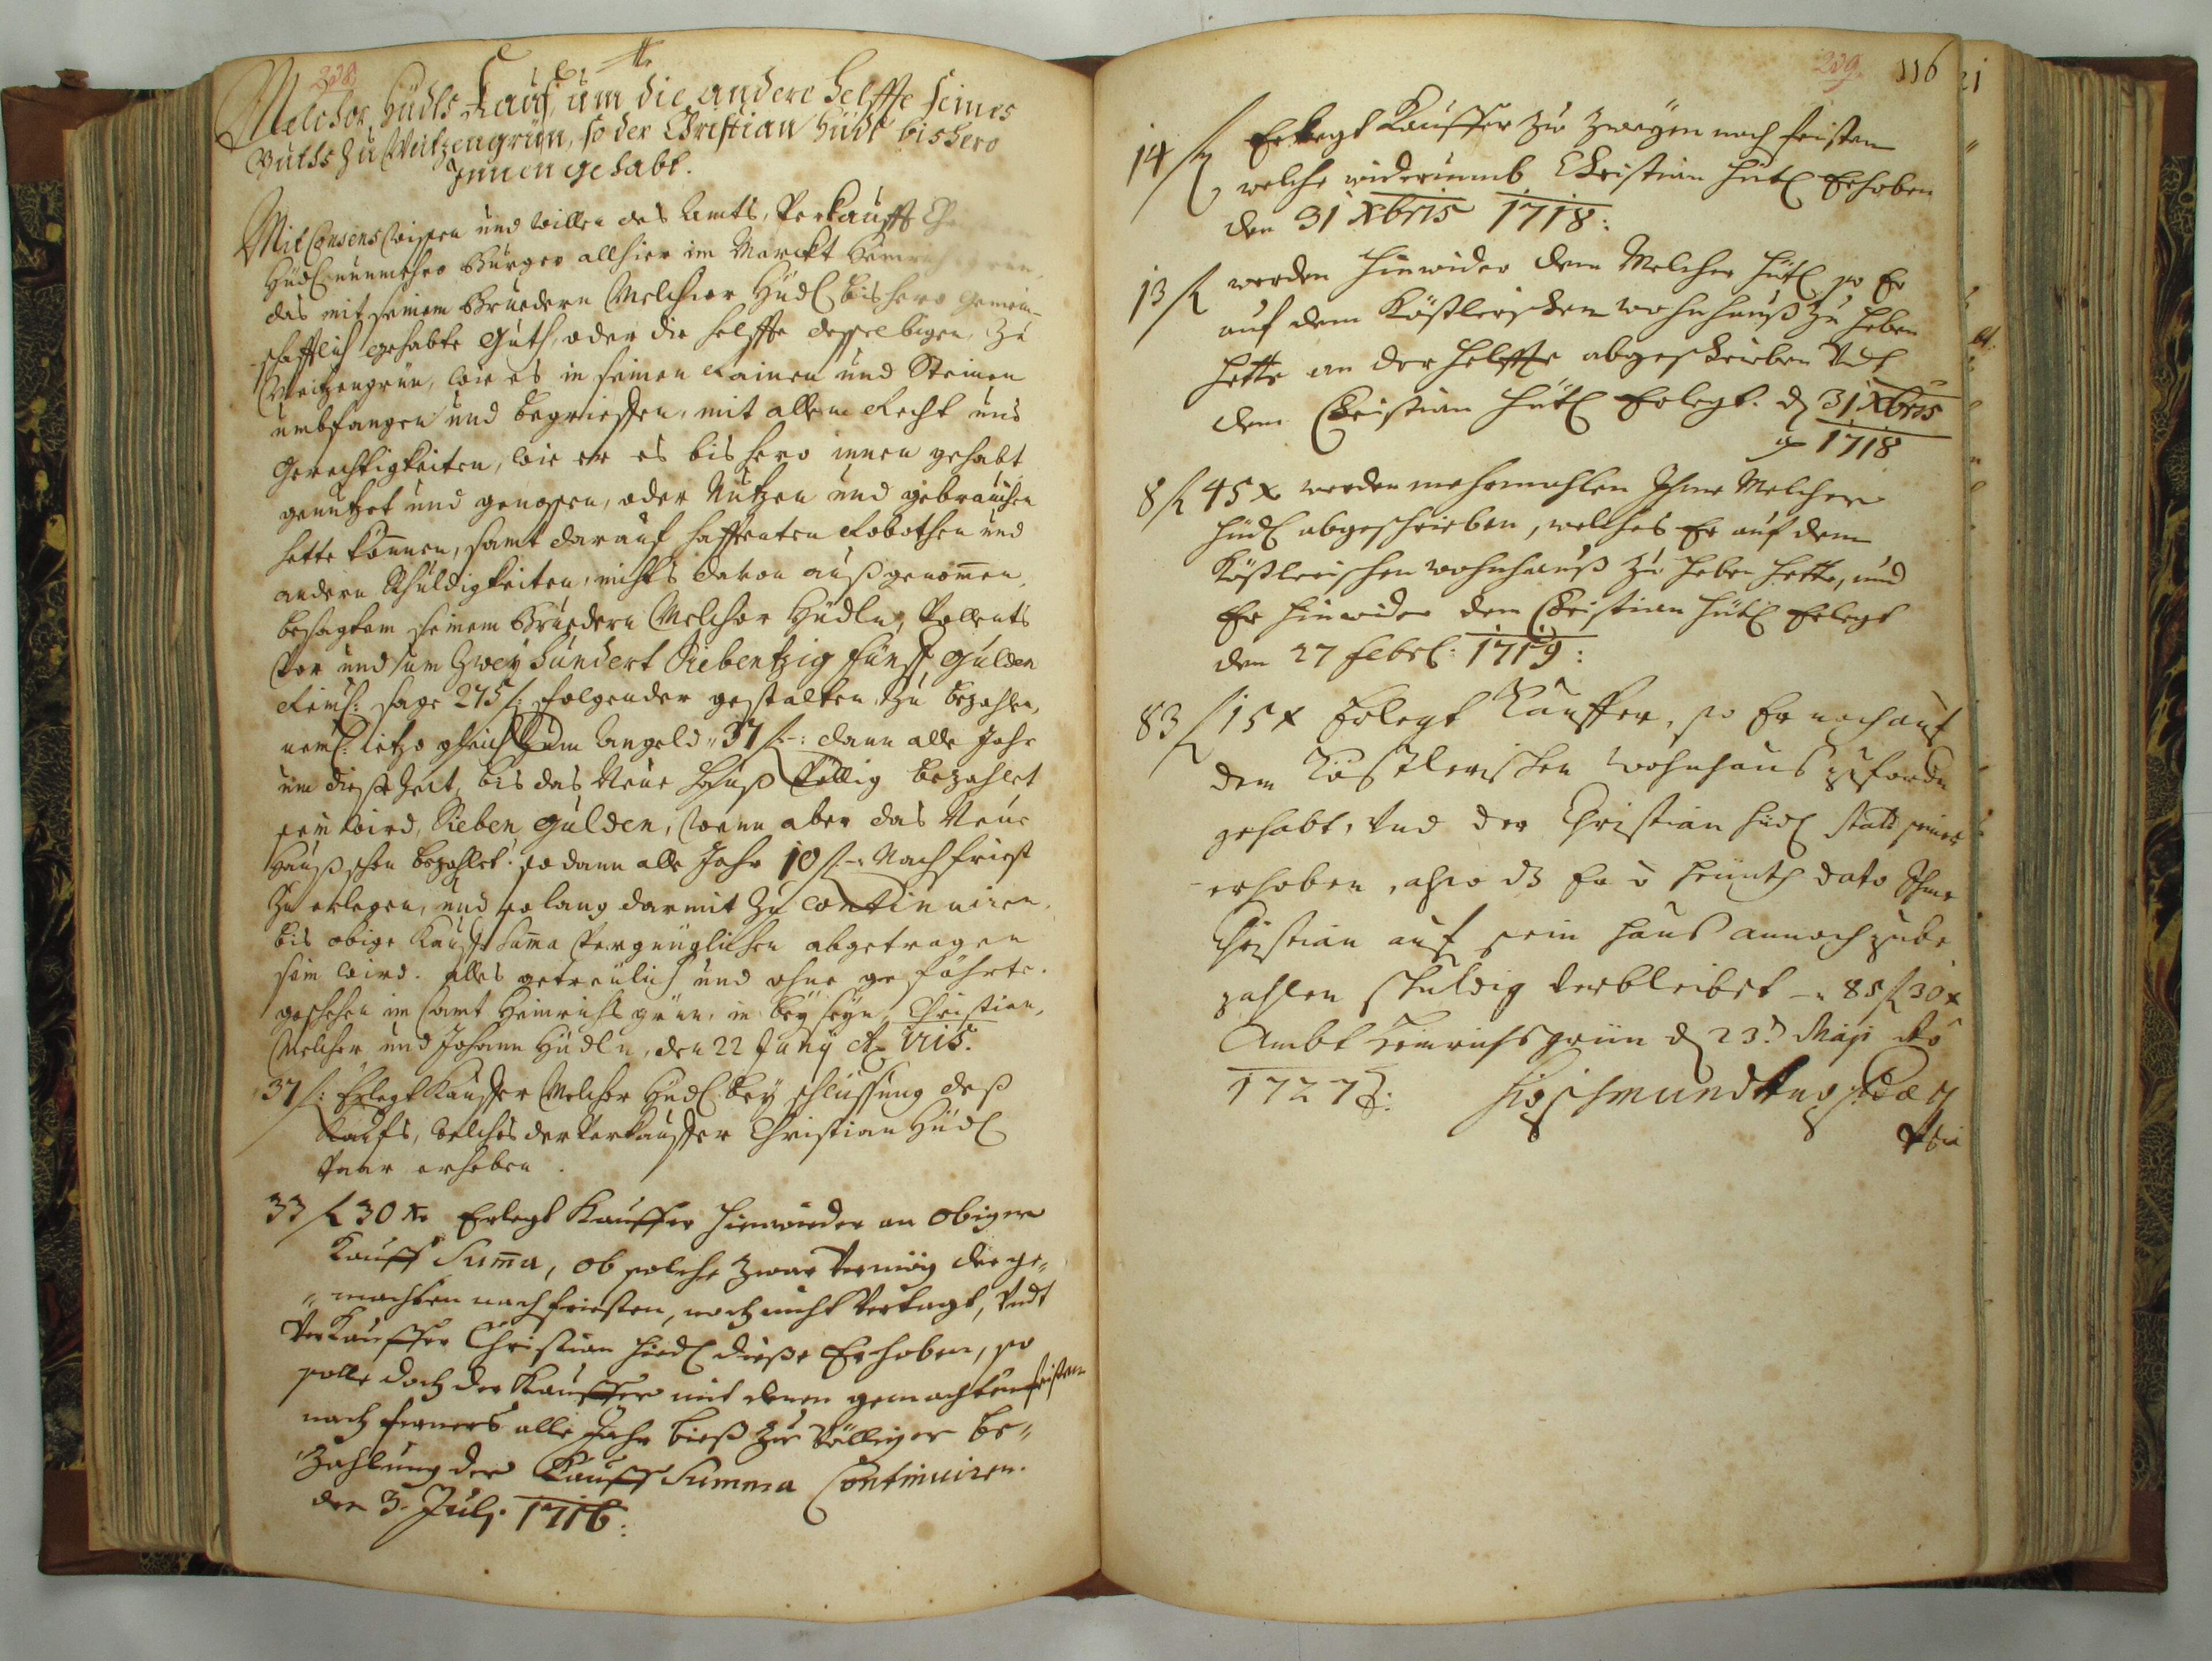 208
Melchor Hüdls Kauf, um die andere helffte seines
Guths zu Waitzengrün, so der Christian Hüdl bishero
Innen gehabt.
Mit Consens Wissen und Willen des Ambts, Verkaufft
Hüdl nunmehro Burger allhier im Marckt
das mit seinem Bruedern Melchior Hüdl bishero gemein-
schafftlich gehabte Guth, oder die helffte desselbigen, zu
Waitzengrün, wie es in seinen Rainen und Steinen
umbfangen und begrieffen, mit allem Recht und
Gerechtigkeiten, wie er es bishero innen gehabt
genutzet und genossen, oder Nutzen und gebrauchen
hette können, samt darauf hafftenten Robothen und
andern Schuldigkeiten, nichts davon außgenomen,
besagtem seinem Bruedern Melchor Hüdln,
vor und um Zweyhundert Siebentzig fünff gulden
Reinl: sage 275 f: folgender gestalten zu bezahlen,
neml: ietzo gleich zum Angeld 37 f-: dann alle Jahr
um diese Zeit, bis das Neue Hauß völlig bezahlet
sein wird, Sieben gulden, wenn aber das Neue
Hauß schon bezahlet: so dann alle Jahr 10 f-: Nachfrist
zu erlegen, und so lang darmit zu continuiren,
bis obige Kauff Suma vergnüglichen abgetragen
sein wird. alles getreulich und ohne gefährte.
geschehen im Ambt Heinrichsgrün, in beyseyn Christian,
Melcher und Johann Hüdln, den 22 Juny Ao 1715.
37 f: Erlegt Kauffer Melchor Hüdl bey schliessung deß
Kaufs, welches der Verkauffer Christian Hüdl
baar erhoben.
33 f 30 xr Erlegt Kauffer hinwieder an obiger
Kauff Suma, ob solche zwar vermög der ge-
machten nachfriesten, noch nicht vertagt, undt
Verkauffer Christian Hüdl diese Erhoben, so
solle doch der Kauffer mit denen gemachten fristen
noch ferners alle Jahr bieß zur völliger be-
zahlung der Kauff Summa Continuiren.
den 3. July. 1716:
209
116
14 f Erlegt Kauffer zu zweyen nachfristen
welche widerumb Christian Hütl Erhoben
den 31 Xbris 1718:
13 f werden hinwider dem Melcher Hütl so Er
auf dem Kößlerischen wohnhauß zu heben
hette an der helffte abgeschrieben Undt
dem Christian Hütl Erlegt. d 31 Xbris
1718
8 f 45 x werden mehrmahlen Ihme Melcher
Hüdl abgeschrieben, welches Er auf dem
Kößlerischen wohnhauß zu heben hette, und
Er hinwider dem Christian Hütl Erlegt
den 27 Febrl: 1719:
83 f 15 x Erlegt Kauffer, so Er noch auf
dem Kößlerischen Wohnhaus zufordn
gehabt, Und der Christian Hüdl statt seiner
erhoben, also dz Er heunth dato Ihme
Christian auf sein Haus annoch zube
zahlen schuldig verbleibet -: 85 f 30 x
Ambt Heinrichsgrün d 23t Maji Ao
1727